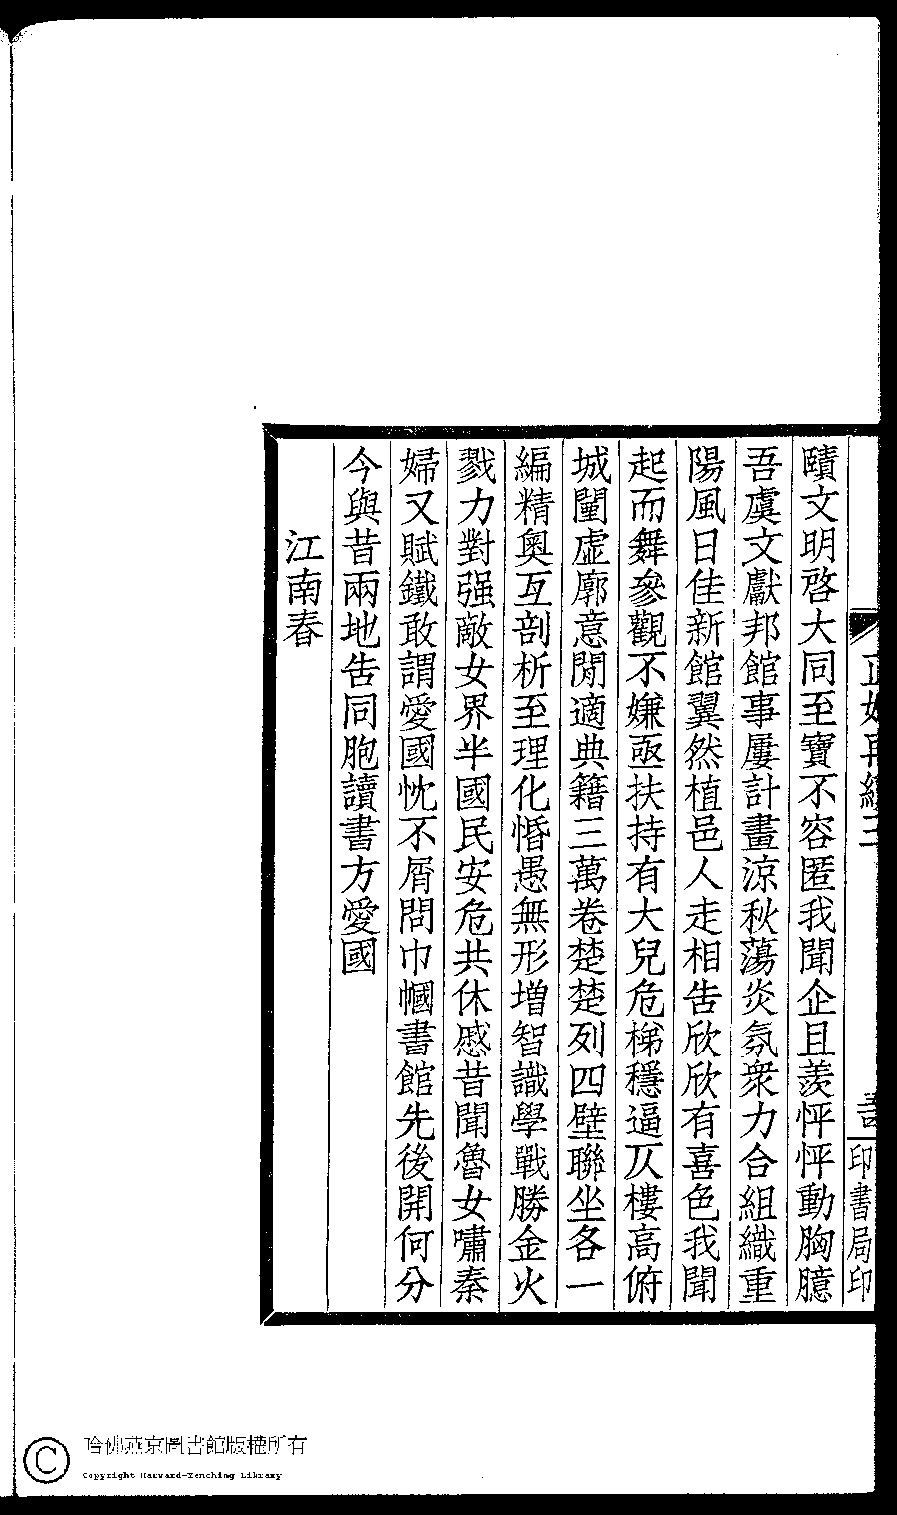 正始再續三
吾
印書局印
賾文明啓大同至寶不容匿我聞企且羨怦怦動胸臆
吾虞文獻邦館事屢計畫涼秋蕩炎氛衆力合組織重
陽風日佳新館翼然植邑人走相告欣欣有喜色我聞
起而舞參觀不嫌亟扶持有大兒危梯穩逼仄樓高俯
城闉虛廓意閒適典籍三萬卷楚楚列四壁聯坐各一
編精奧互剖析至理化惛愚無形增智識學戰勝金火
戮力對强敵女界半國民安危共休慼昔聞魯女嘯秦
婦又賦鐵敢謂愛國忱不屑問巾幗書館先後開何分
今與昔兩地告同胞讀書方愛國
江南春
哈佛燕京圖書館版權所有
Copyright Harvard-Yenching Library